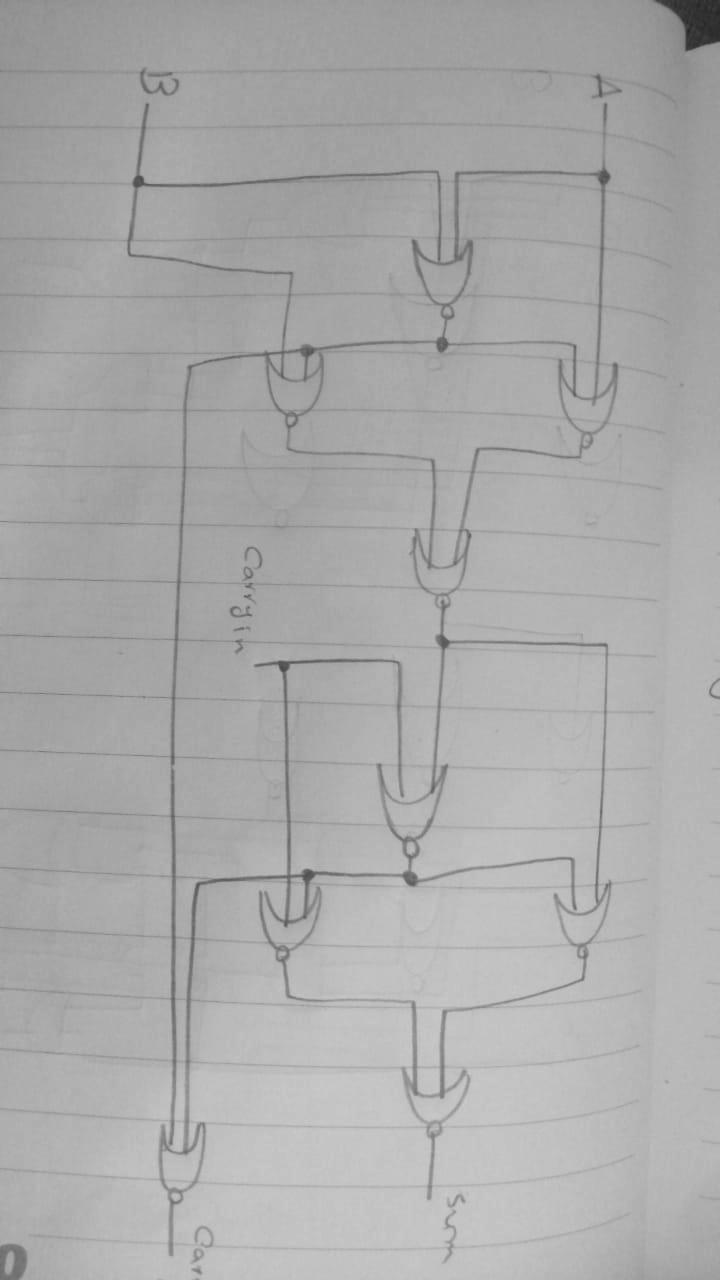 A
B
Carry in
Sum